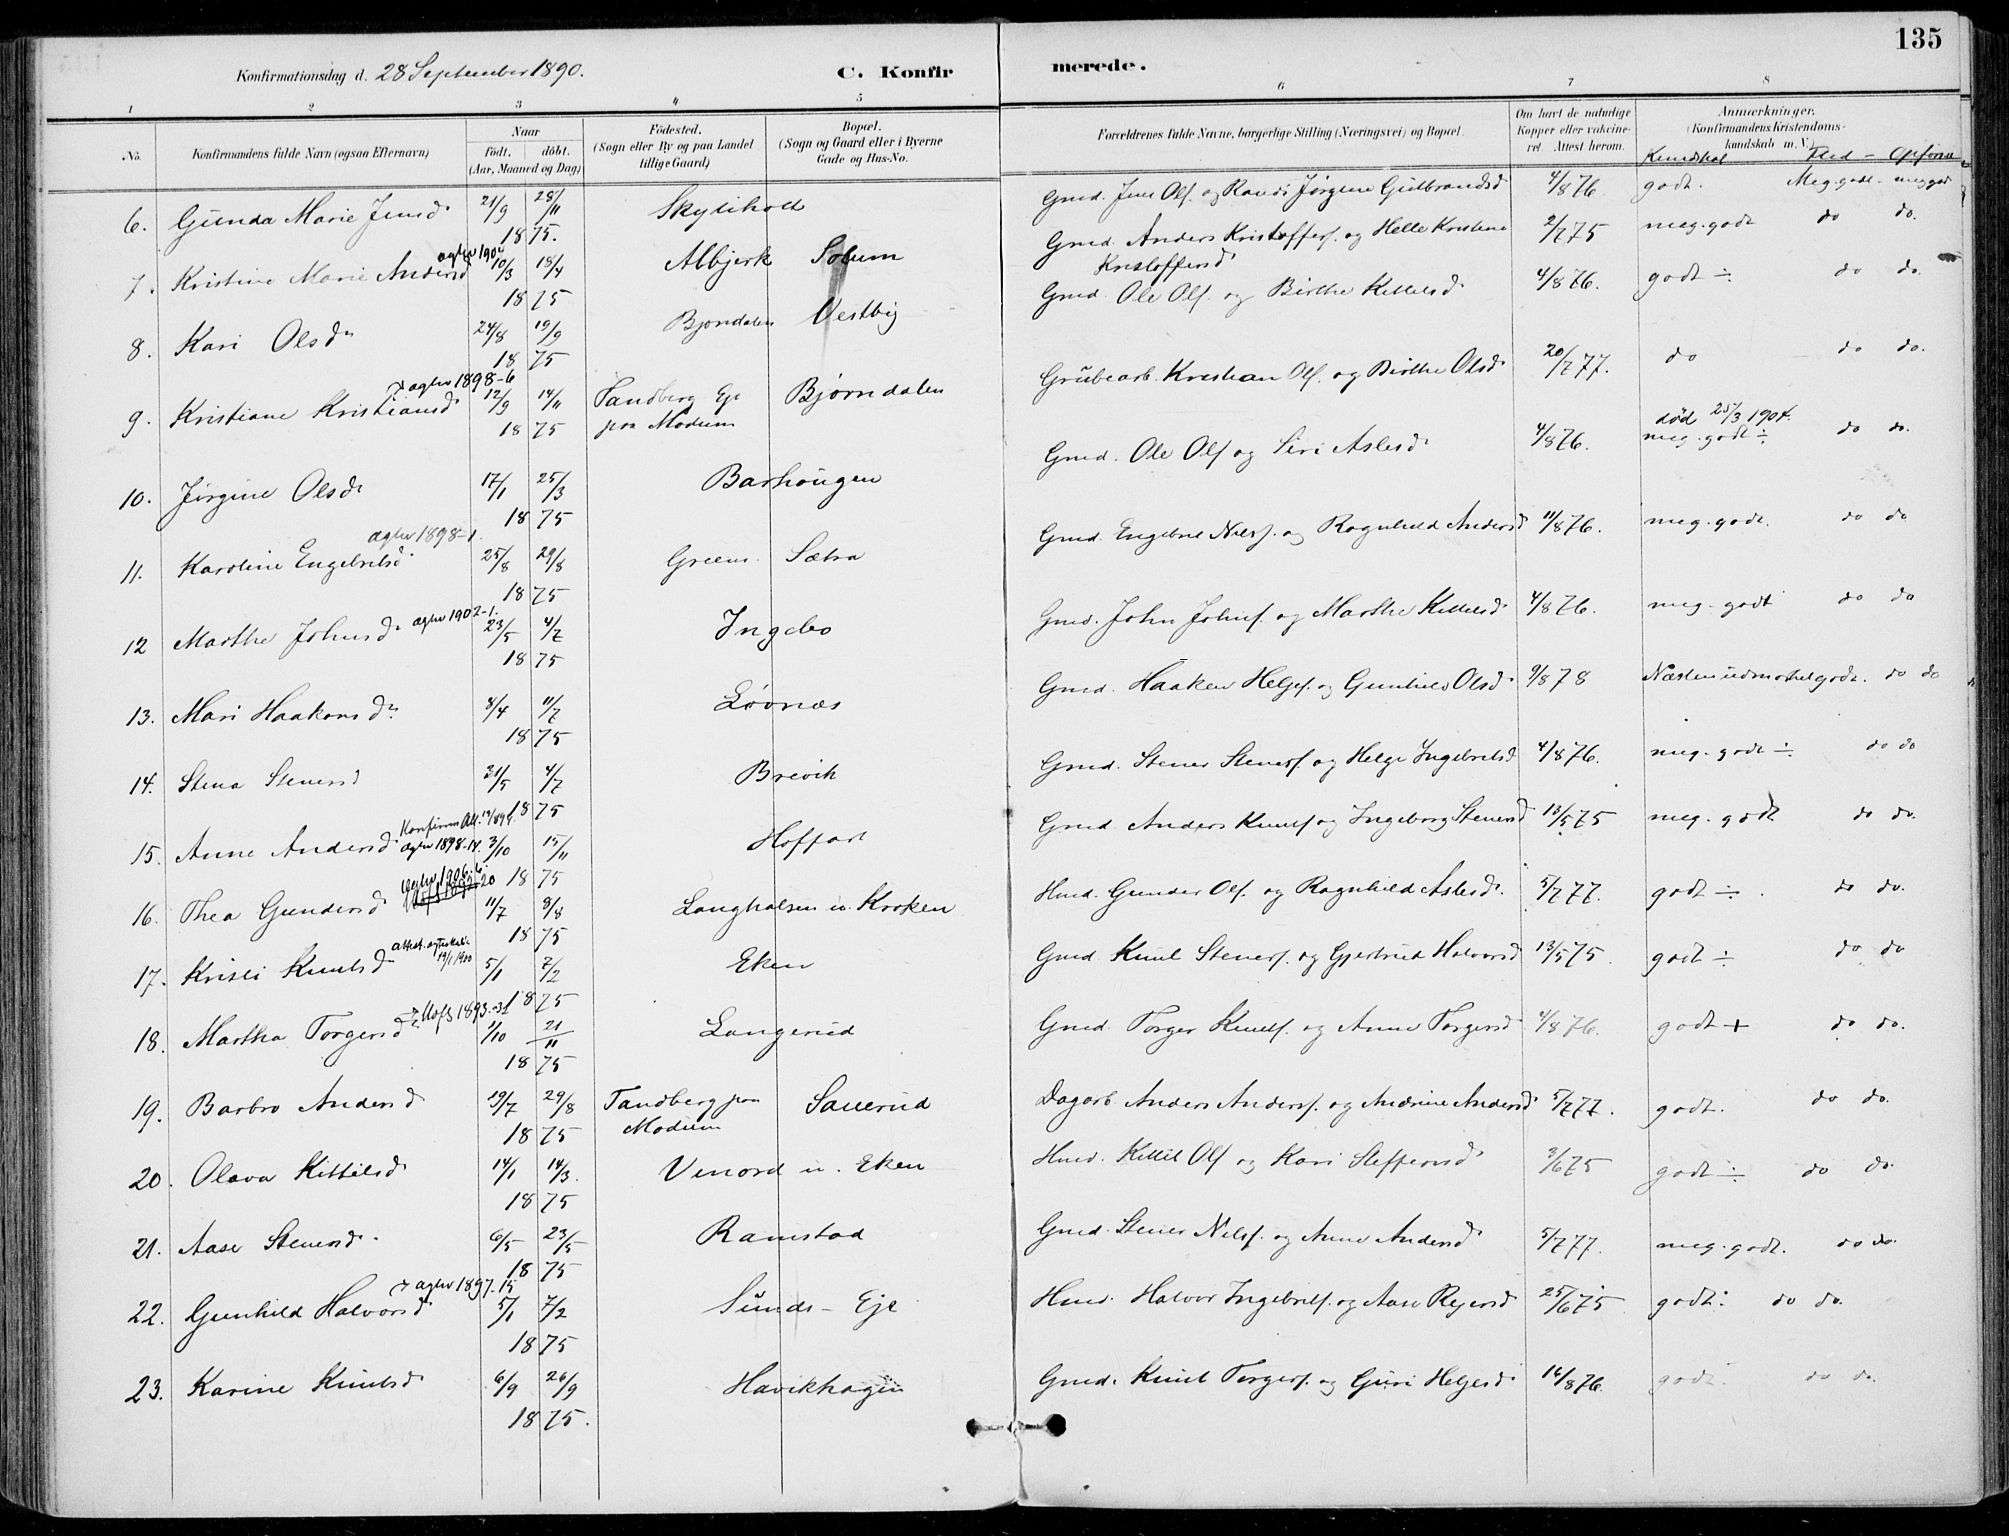 135
Konfirmationsdag d. 28 September 1890.
C. Konfirmerede.
1 2 3 4 5 6 7 8
No. Konfirmandens fulde Navn (ogsaa Efternavn) Naar født. døbt. (Aar, Maaned og Dag) Fødested. (Sogn eller By og paa Landet tillige Gaard) Bopæl. (Sogn og Gaard eller i Byerne Gade og Hus-No. Forældrenes fulde Navne, borgerlige Stilling (Næringsvei) og Bopæl. Om havt de naturlige Kopper eller vaccineret. Attest herom. Anmærkninger. (Konfirmandens Kristendomskundskab m. V.)
Kundskab Flid - Opførsel
6. Gunda Marie Jensd. 21/9 28/11 Skytiholt Gmd. Jens Ols. og Randi Jørgine Gulbrandsd 4/8 76 godt. Meg. godt - meg godt
1875.
7. Kristine Marie Andersd aglv 1902 10/3 18/4 Albjerk Solum Gmd. Anders Kristoffers. og Helle Kristine Kristoffersd 2/7 75 meg. godt do do.
1875
8. Kari Olsdr 24/8 19/9 Bjondalen Vestby Gmd. Ole Ols. og Birthe Kittelsd 4/8 76. godt ÷ do do.
1875
aglv 1898-6
9. Kristiane Kristiansd 12/9 14/11 Tandberg Eje paa Modum Bjørndalen Grubearb. Kristian Ols. og Birthe Olsd 20/7 77. do do do.
1875
10. Jørgine Olsd 17/1 25/3 Barhaugen Gmd. Ole Ols og Siri Aslesd 4/8 76. død 25/3 1904. meg. godt ÷ do do.
1875
aglv 1898-1.
11. Karoline Engebretsd 25/8 29/8 Green Sætra Gmd. Engebret Nilss. og Ragnhild Andersd 11/8 76. meg. godt. do do
1875
12 Marthe Johnsd aglv 1902-1. 23/5 4/7 Ingebo Gmd. John Johns. og Marthe Kittelsd 4/8 76. meg. godt do do
1875
13. Mari Haakonsdr 8/4 11/7 Løvnæs Gmd. Haaken Helges. og Gunhild Olsd 9/8 78 Næsten udmærket godt. do do
1875
14. Stena Stenersd 21/5 4/7 Brevik Gmd. Stener Steners. og Helge Ingebretsd 4/8 76. meg. godt ÷ do do
1875
15. Anne Andersd Konfirm. Att. aglv 1898-14. 3/10 15/11 Hoffart Gmd Anders Knuts og Ingeborg Stenersd 13/5 75 meg. godt do do.
1875
16. Thea Gundersd aglv 1906-6. 11/7 8/8 Langhalsen u. Kroken Hmd. Gunder Ols. og Ragnhild Aslesd. 5/7 77. godt ÷. do do.
1875
17. Kristi Knutsd 5/1 7/2 Eken Gmd Knut Steners. og Gjertrud Halvorsd 13/5 75. godt ÷ do do
1875
18. Martha Torgersd Utfl 1893-31 1/10 21/11 Langerud Gmd. Torger Knuts. og Anne Torgersd 4/8 76. godt + do do.
1875
19. Barbro Andersd 19/7 29/8 Tandberg paa Modum Sauerud Dagarb Anders Anders. og Andrine Andersd 5/7 77. godt. do do.
1875
20. Olava Kittelsd 14/1 14/3. Venord u. Eken Hmd. Kittil Ols og Kari Steffensd 3/6 75 godt ÷ do do.
1875
21. Aase Stenersd. 6/5 23/5 Ramstad Gmd. Stener Nilss. og Anne Andersd 5/7 77. meg. godt. do do.
1875
aglv 1897-15
22. Gunhild Halvorsd 5/1 7/2 Sunds-Eje Hmd. Halvor Ingebrets. og Aase Reiersd 25/6 75 godt: do do.
1875
23. Karine Knutsd 6/9 26/9 Havikhagen Gmd. Knut Torgers. og Guri Helgesd 14/8 76. godt do do.
1875.